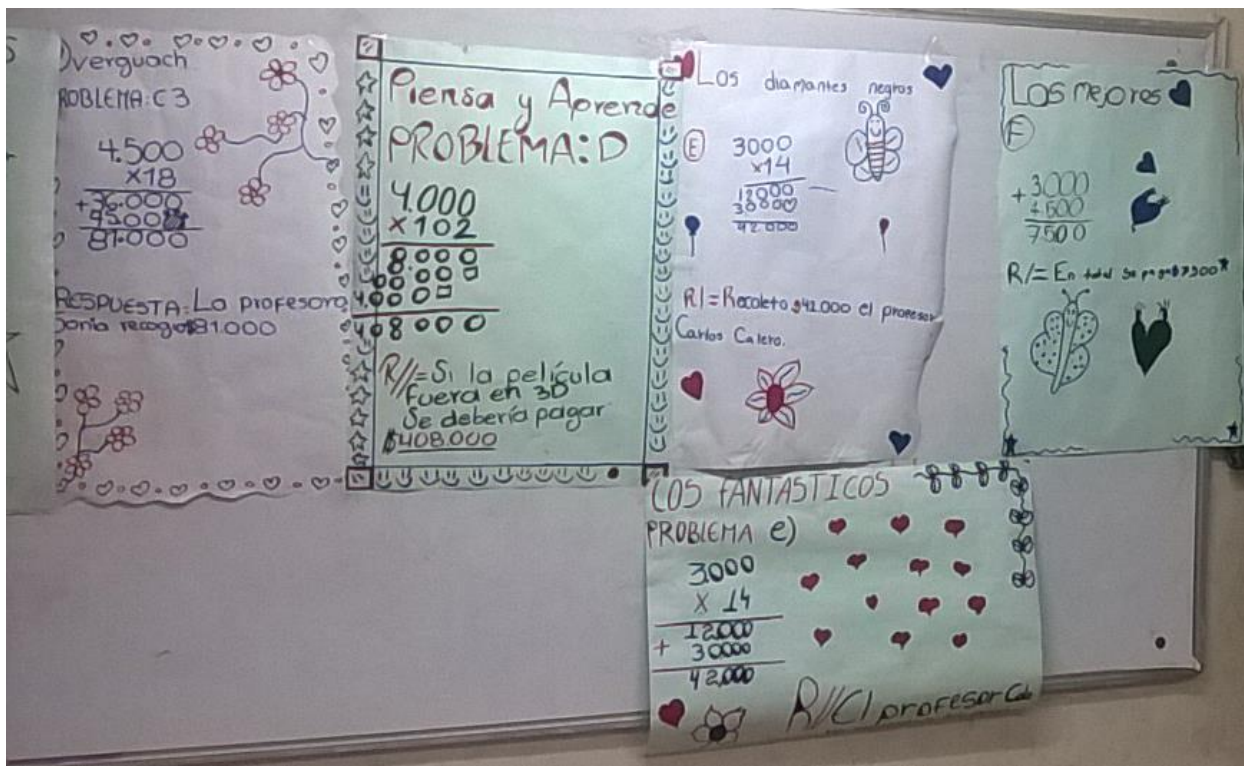 Dverguach
ROBLEMA: C3
4.500
×18
+36.000
81.000
RESPUESTA: La profesora
Sonia recogio $81.000
Piensa y Aprende
PROBLEMA: D
4.000
×102
8000
000
4000
408000
R//= Si la película
fuera en 3D
Se debería pagar
$408.000
Los diamantes negros
E
3000
×14
12000
42.000
R/= Recoleto $42.000 el profesor
Carlos Calero.
Los mejores
F
+3000
4500
7500
R/= En total se paga $7500
LOS FANTASTICOS
PROBLEMA e)
3000
X 14
12000
+ 30000
42,000
R// El profesor